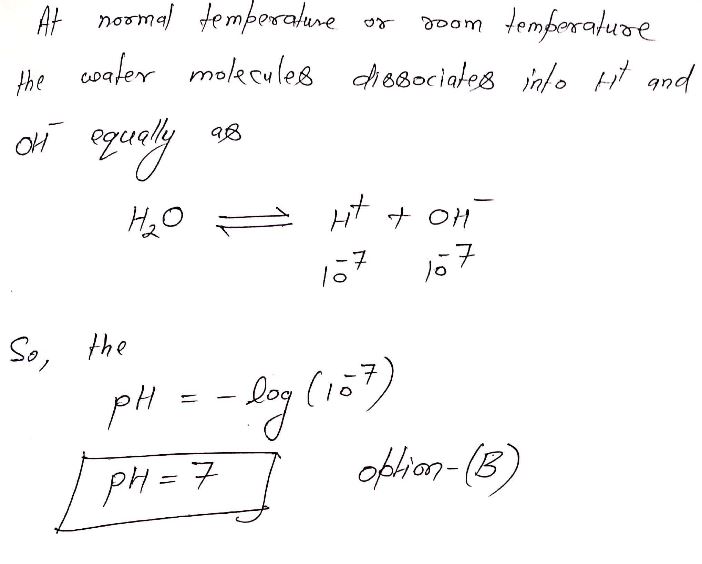 At normal temperature or room temperature
the water molecules dissociates into H⁺ and
OH⁻ equally as
H₂O ⇌ H⁺ + OH⁻
10⁻⁷ 10⁻⁷
So, the
pH = - log (10⁻⁷)
pH = 7 option-(B)